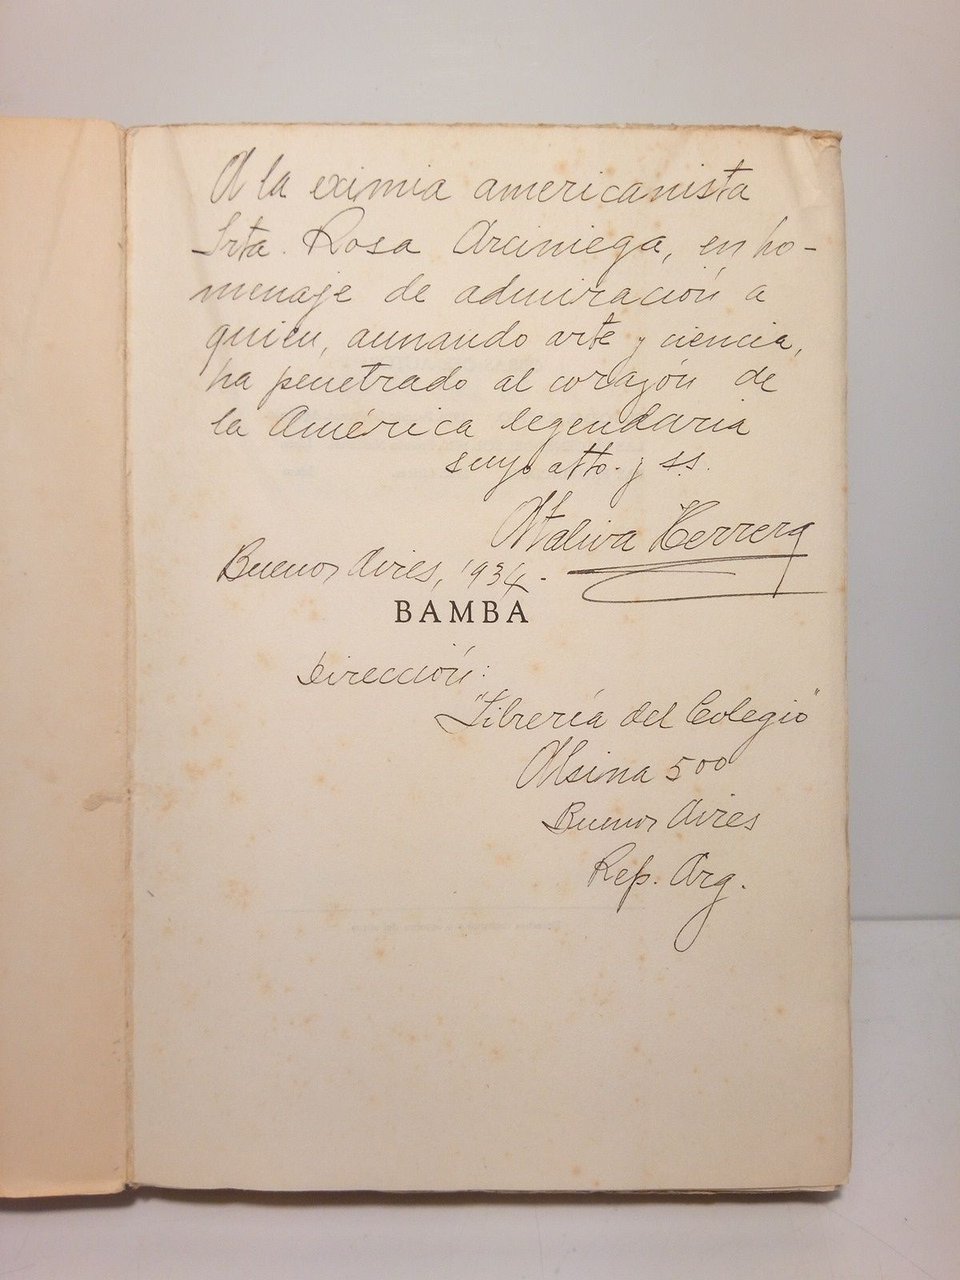 A la eximia americanista
Srta. Rosa Arciniega, en ho-
menaje de admiración a
quien, aunando arte y ciencia,
ha penetrado al corazón de
la América legendaria
suyo atto. y ss.
Ataliva Herrera
Buenos Aires, 1934.
BAMBA
Dirección:
"Librería del Colegio"
Alsina 500
Buenos Aires
Rep. Arg.